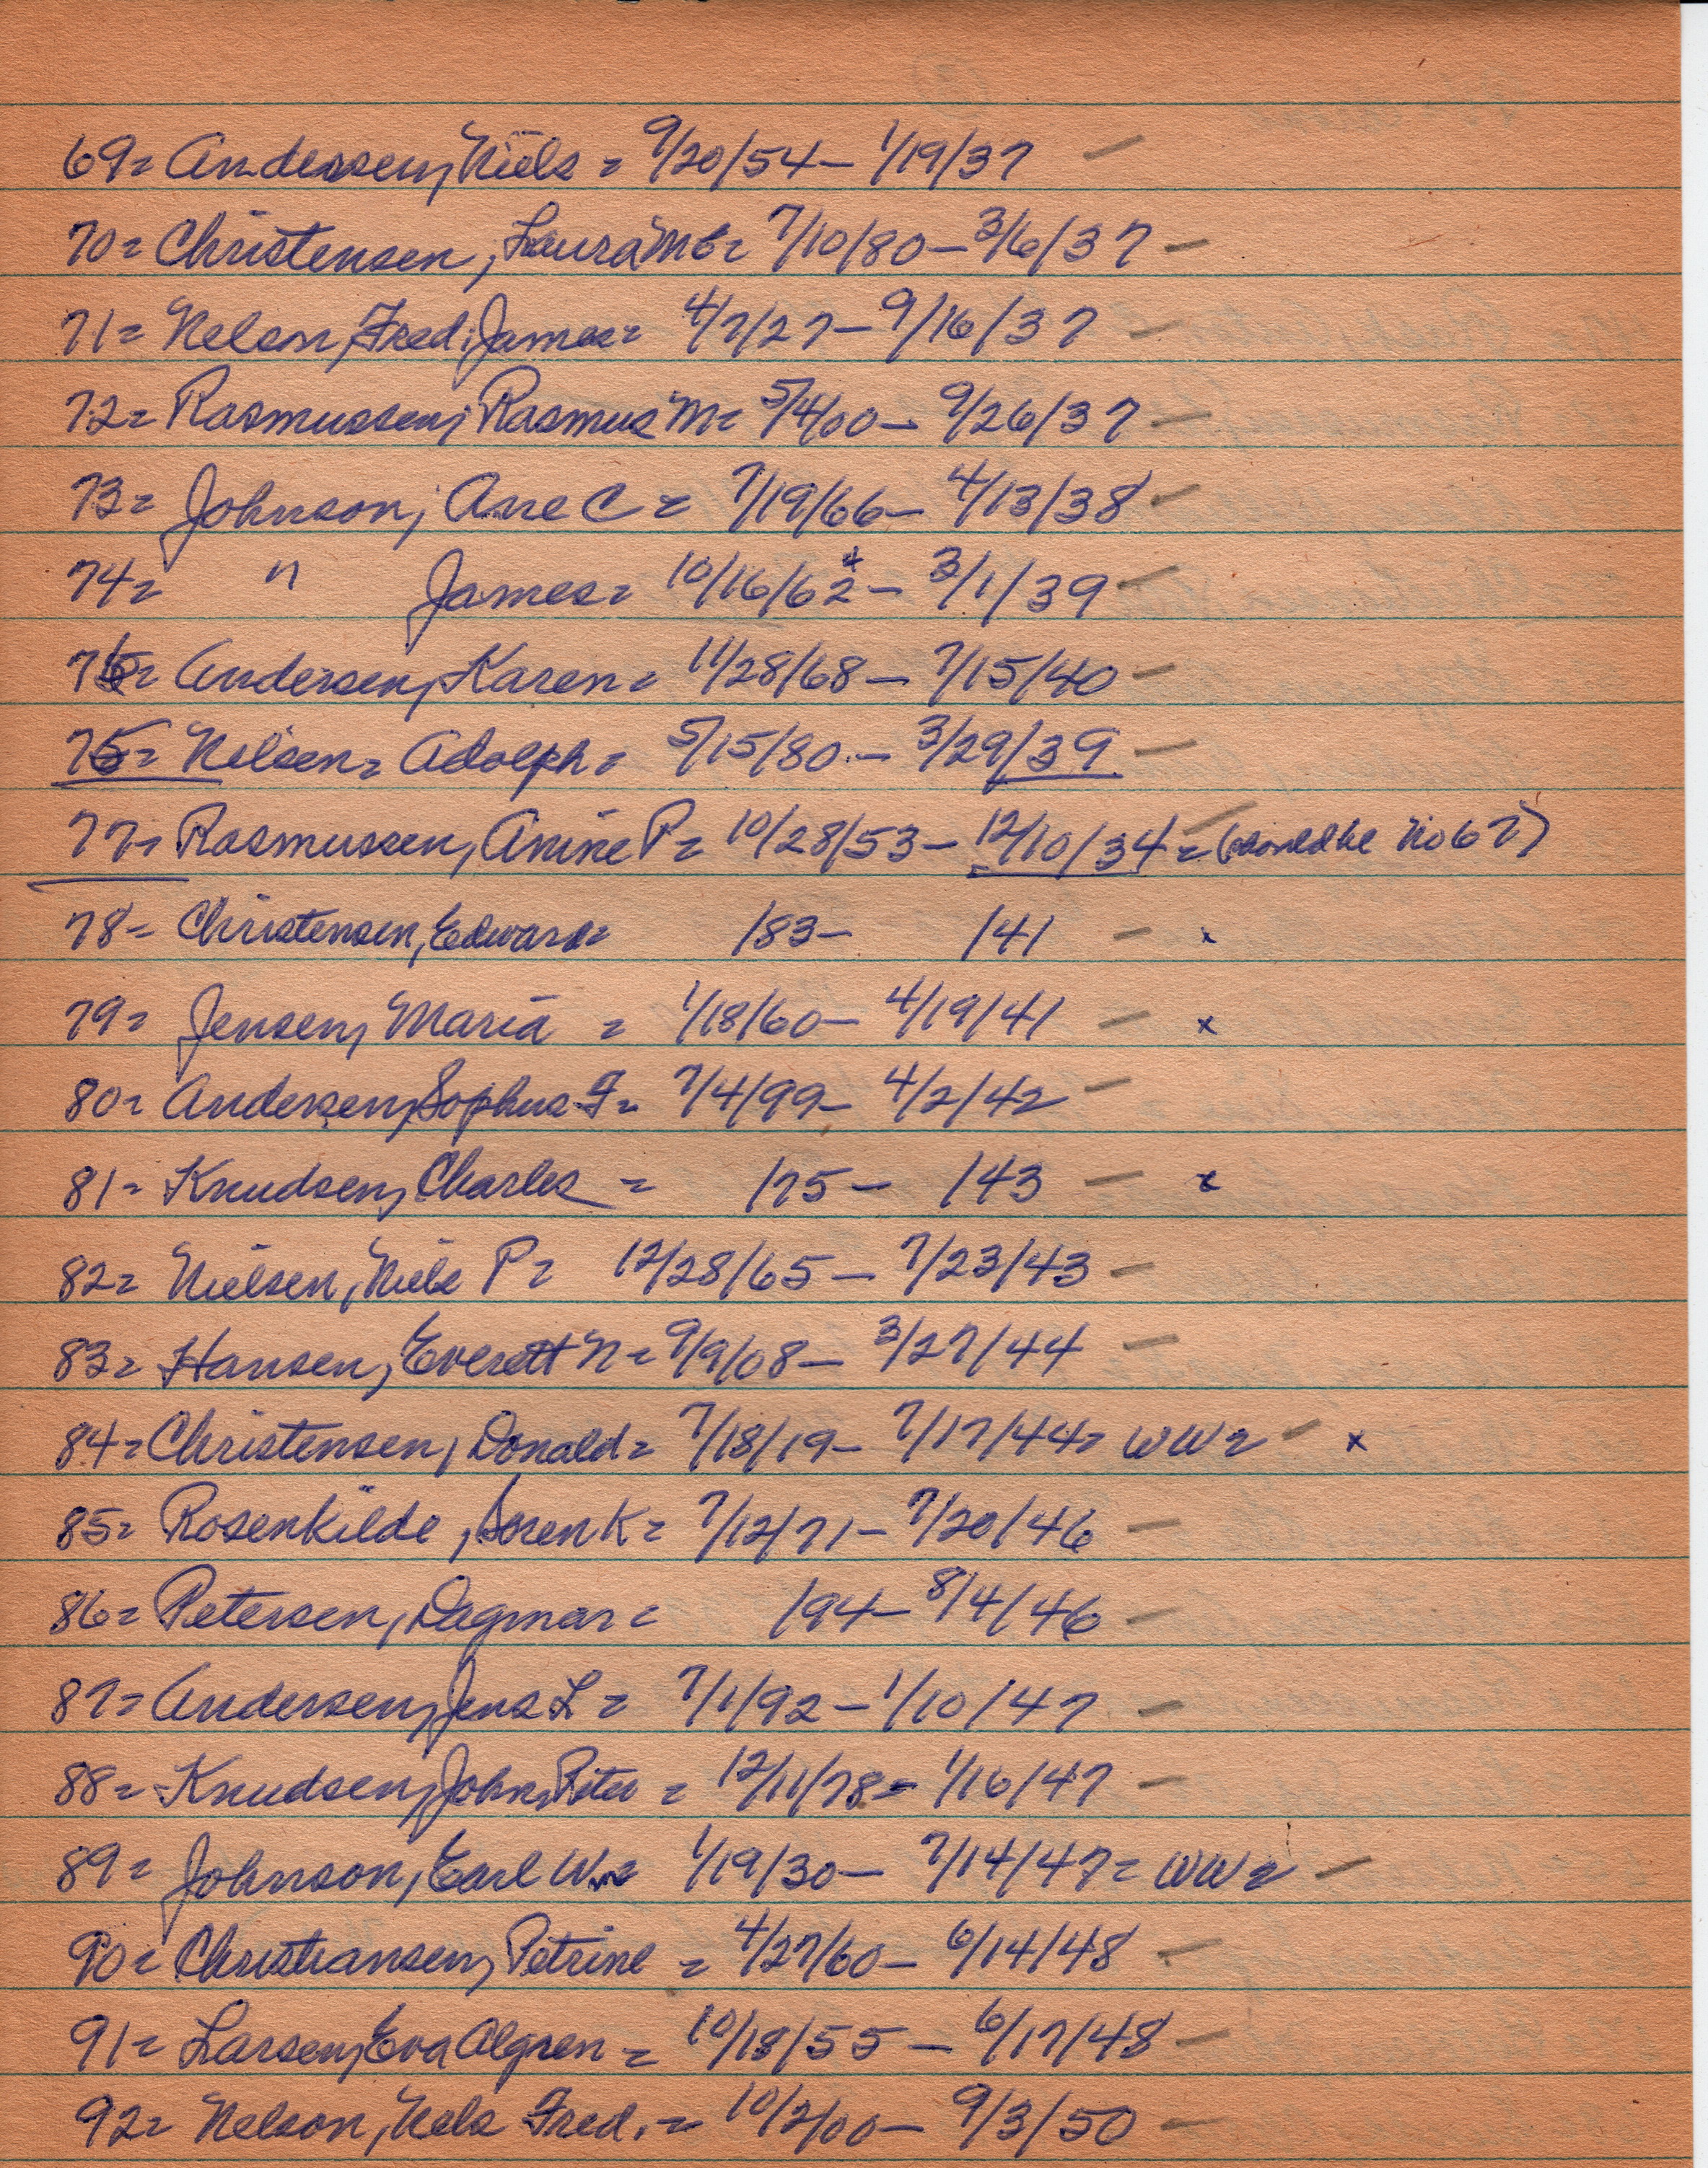 69= Andersen, Niels = 9/20/54 — 1/19/37 —
70= Christensen, Laura M E= 7/10/80 — 3/6/37 —
71= Nelson, Fred. James= 4/7/27 — 9/16/37 —
72= Rasmussen, Rasmus M= 5/4/00 — 9/26/37 —
73= Johnson, Ane C = 7/19/66 — 4/13/38 —
74= " James= 10/16/62* — 3/1/39 —
76= Andersen, Karen= 11/28/68 — 7/15/40 —
75= Nelsen= Adolph= 5/15/80 — 3/29/39 —
77= Rasmussen, Anine P= 10/28/53 — 12/10/34 = (should be No 67)
78= Christensen, Edward= /83 — /41 — x
79= Jensen, Maria = 1/18/60 — 4/19/41 — x
80= Andersen, Sophus F= 7/4/99 — 4/2/42 —
81= Knudsen, Charles = /75 — /43 — x
82= Nielsen, Niels P= 12/28/65 — 7/23/43 —
83= Hansen, Everett N= 9/9/08 — 3/27/44 —
84= Christensen, Donald= 7/18/19 — 7/17/44= WW2 — x
85= Rosenkilde, Soren K= 7/12/71 — 7/20/46 —
86= Petersen, Dagmar= /94 — 8/4/46 —
87= Andersen, Jens L= 7/1/92 — 1/10/47 —
88= Knudsen, John Peter = 12/11/78= 1/16/47 —
89= Johnson, Earl Wm= 1/19/30 — 7/14/47= WW2 —
90= Christiansen, Petrine = 4/27/60 — 6/14/48 —
91= Larsen, Eva Algren= 10/18/55 — 6/17/48 —
92= Nelson, Nels Fred. = 10/2/00 — 9/3/50 —